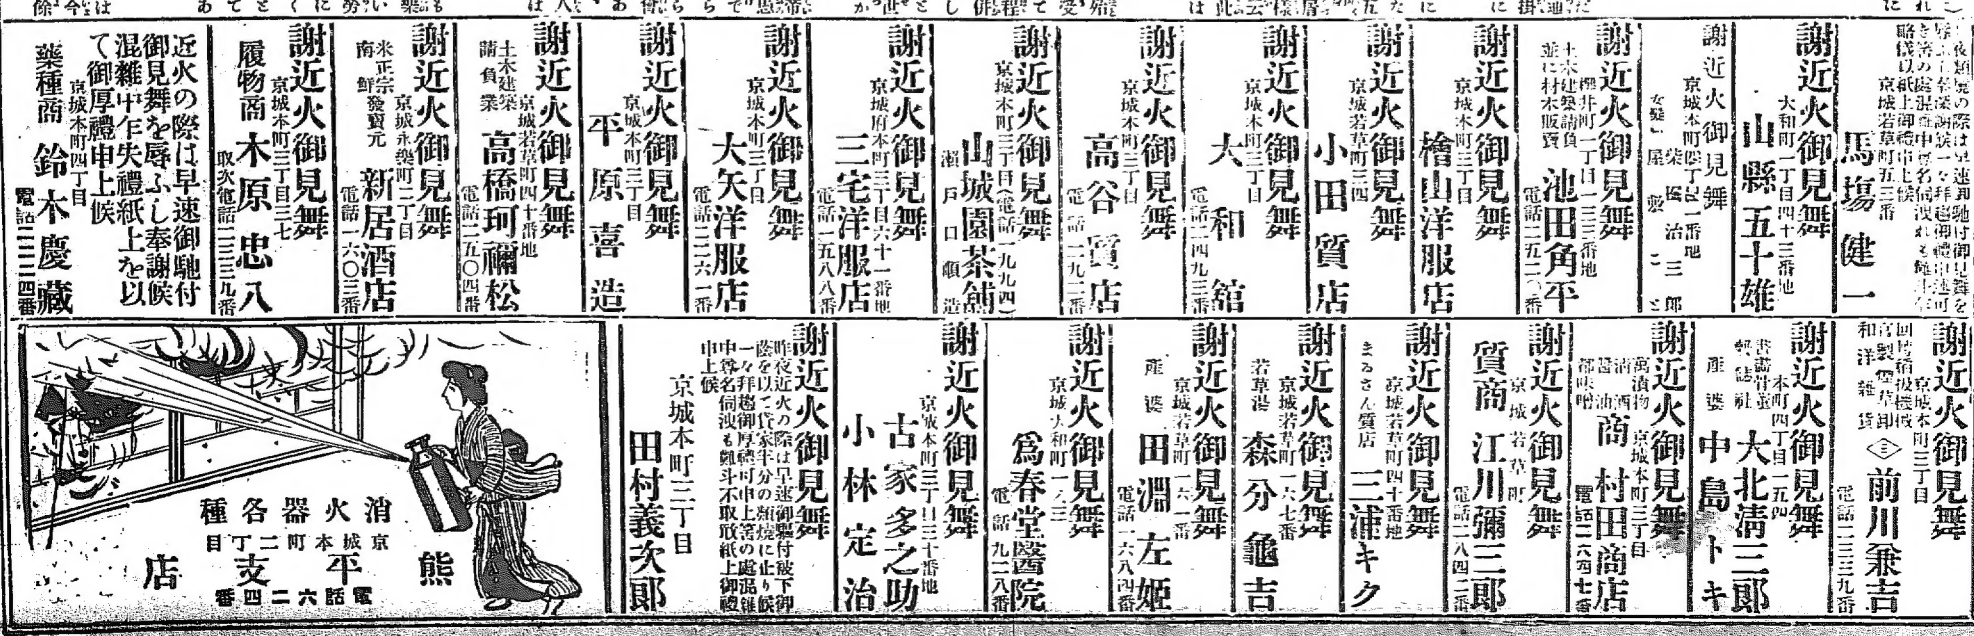 略儀以紙上御禮申上候
京城若草町五三番
馬塲健一
謝近火御見舞
大和町一丁目四十三番地
山縣五十雄
謝近火御見舞
謝近火御見舞
櫻井町一丁目一三三番地
土木建築請負
並に材木販賣
池田角平
電話二五二〇番
謝近火御見舞
京城本町三丁目
檜山洋服店
謝近火御見舞
京城若草町三四
小田質店
謝近火御見舞
京城本町三丁目
大和舘
電話二四九三番
謝近火御見舞
京城本町三丁目
高谷質店
電話二九二一番
謝近火御見舞
京城本町三丁目(電話一九九四)
山城園茶舖
瀬戸口順造
謝近火御見舞
京城府本町三丁目六十一番地
三宅洋服店
電話一五八八番
謝近火御見舞
京城本町三丁目
大矢洋服店
電話二二六一番
謝近火御見舞
京城本町三丁目
平原喜造
謝近火御見舞
京城若草町四十番地
土木建築
請負業
高橋珂禰松
電話二五〇四番
謝近火御見舞
京城永樂町二丁目
米正宗
南鮮發賣元
新居酒店
電話一六〇三番
謝近火御見舞
京城本町三丁目三七
履物商
木原忠八
近火の際は早速御馳付
御見舞を辱ふし奉謝候
混雜中乍失禮紙上を以
て御厚禮申上候
京城本町四丁目
藥種商
鈴木慶藏
電話二二二四番
謝近火御見舞
京城本町三丁目
和洋雜貨
前川兼吉
電話二三三九番
謝近火御見舞
本町四丁目一五四
大北淸三郎
產婆
中島トキ
謝近火御見舞
京城本町三丁目
萬漬物
淸酒
醤油
都味噌
商
村田商店
電話二六四七番
謝近火御見舞
京城若草町
質商
江川彌三郎
電話一八四二番
謝近火御見舞
京城若草町四十番地
まるさん質店
三浦キク
謝近火御見舞
京城若草町一六七番
若草湯
森分龜吉
謝近火御見舞
京城若草町一六一番
產婆
田淵左姬
電話一六八四番
謝近火御見舞
京城大和町一ノ三
爲春堂醫院
電話九二八番
謝近火御見舞
京城本町三丁目三十番地
古家多之助
小林定治
謝近火御見舞
昨夜近火の際は早速御驅付被下御
蔭を以て貸家半分の類燒に止り候
一々拜趨御厚禮可申上筈の處混雜
中尊名伺洩も難斗不取敢紙上御禮
申上候
京城本町三丁目
田村義次郎
消火器各種
京城本町二丁目
熊平支店
電話六二四番